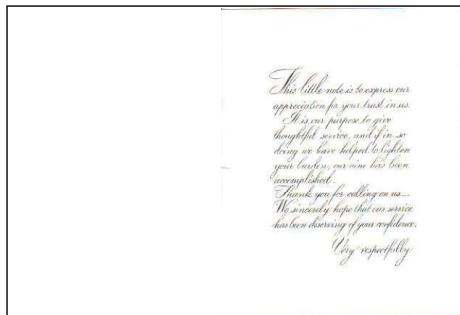 This little note is to express our
appreciation for your trust in us.
It is our purpose to give
thoughtful service, and if in so
doing we have helped to lighten
your burden, our aim has been
accomplished.
Thank you for calling on us...
We sincerely hope that our service
has been deserving of your confidence.
Very respectfully